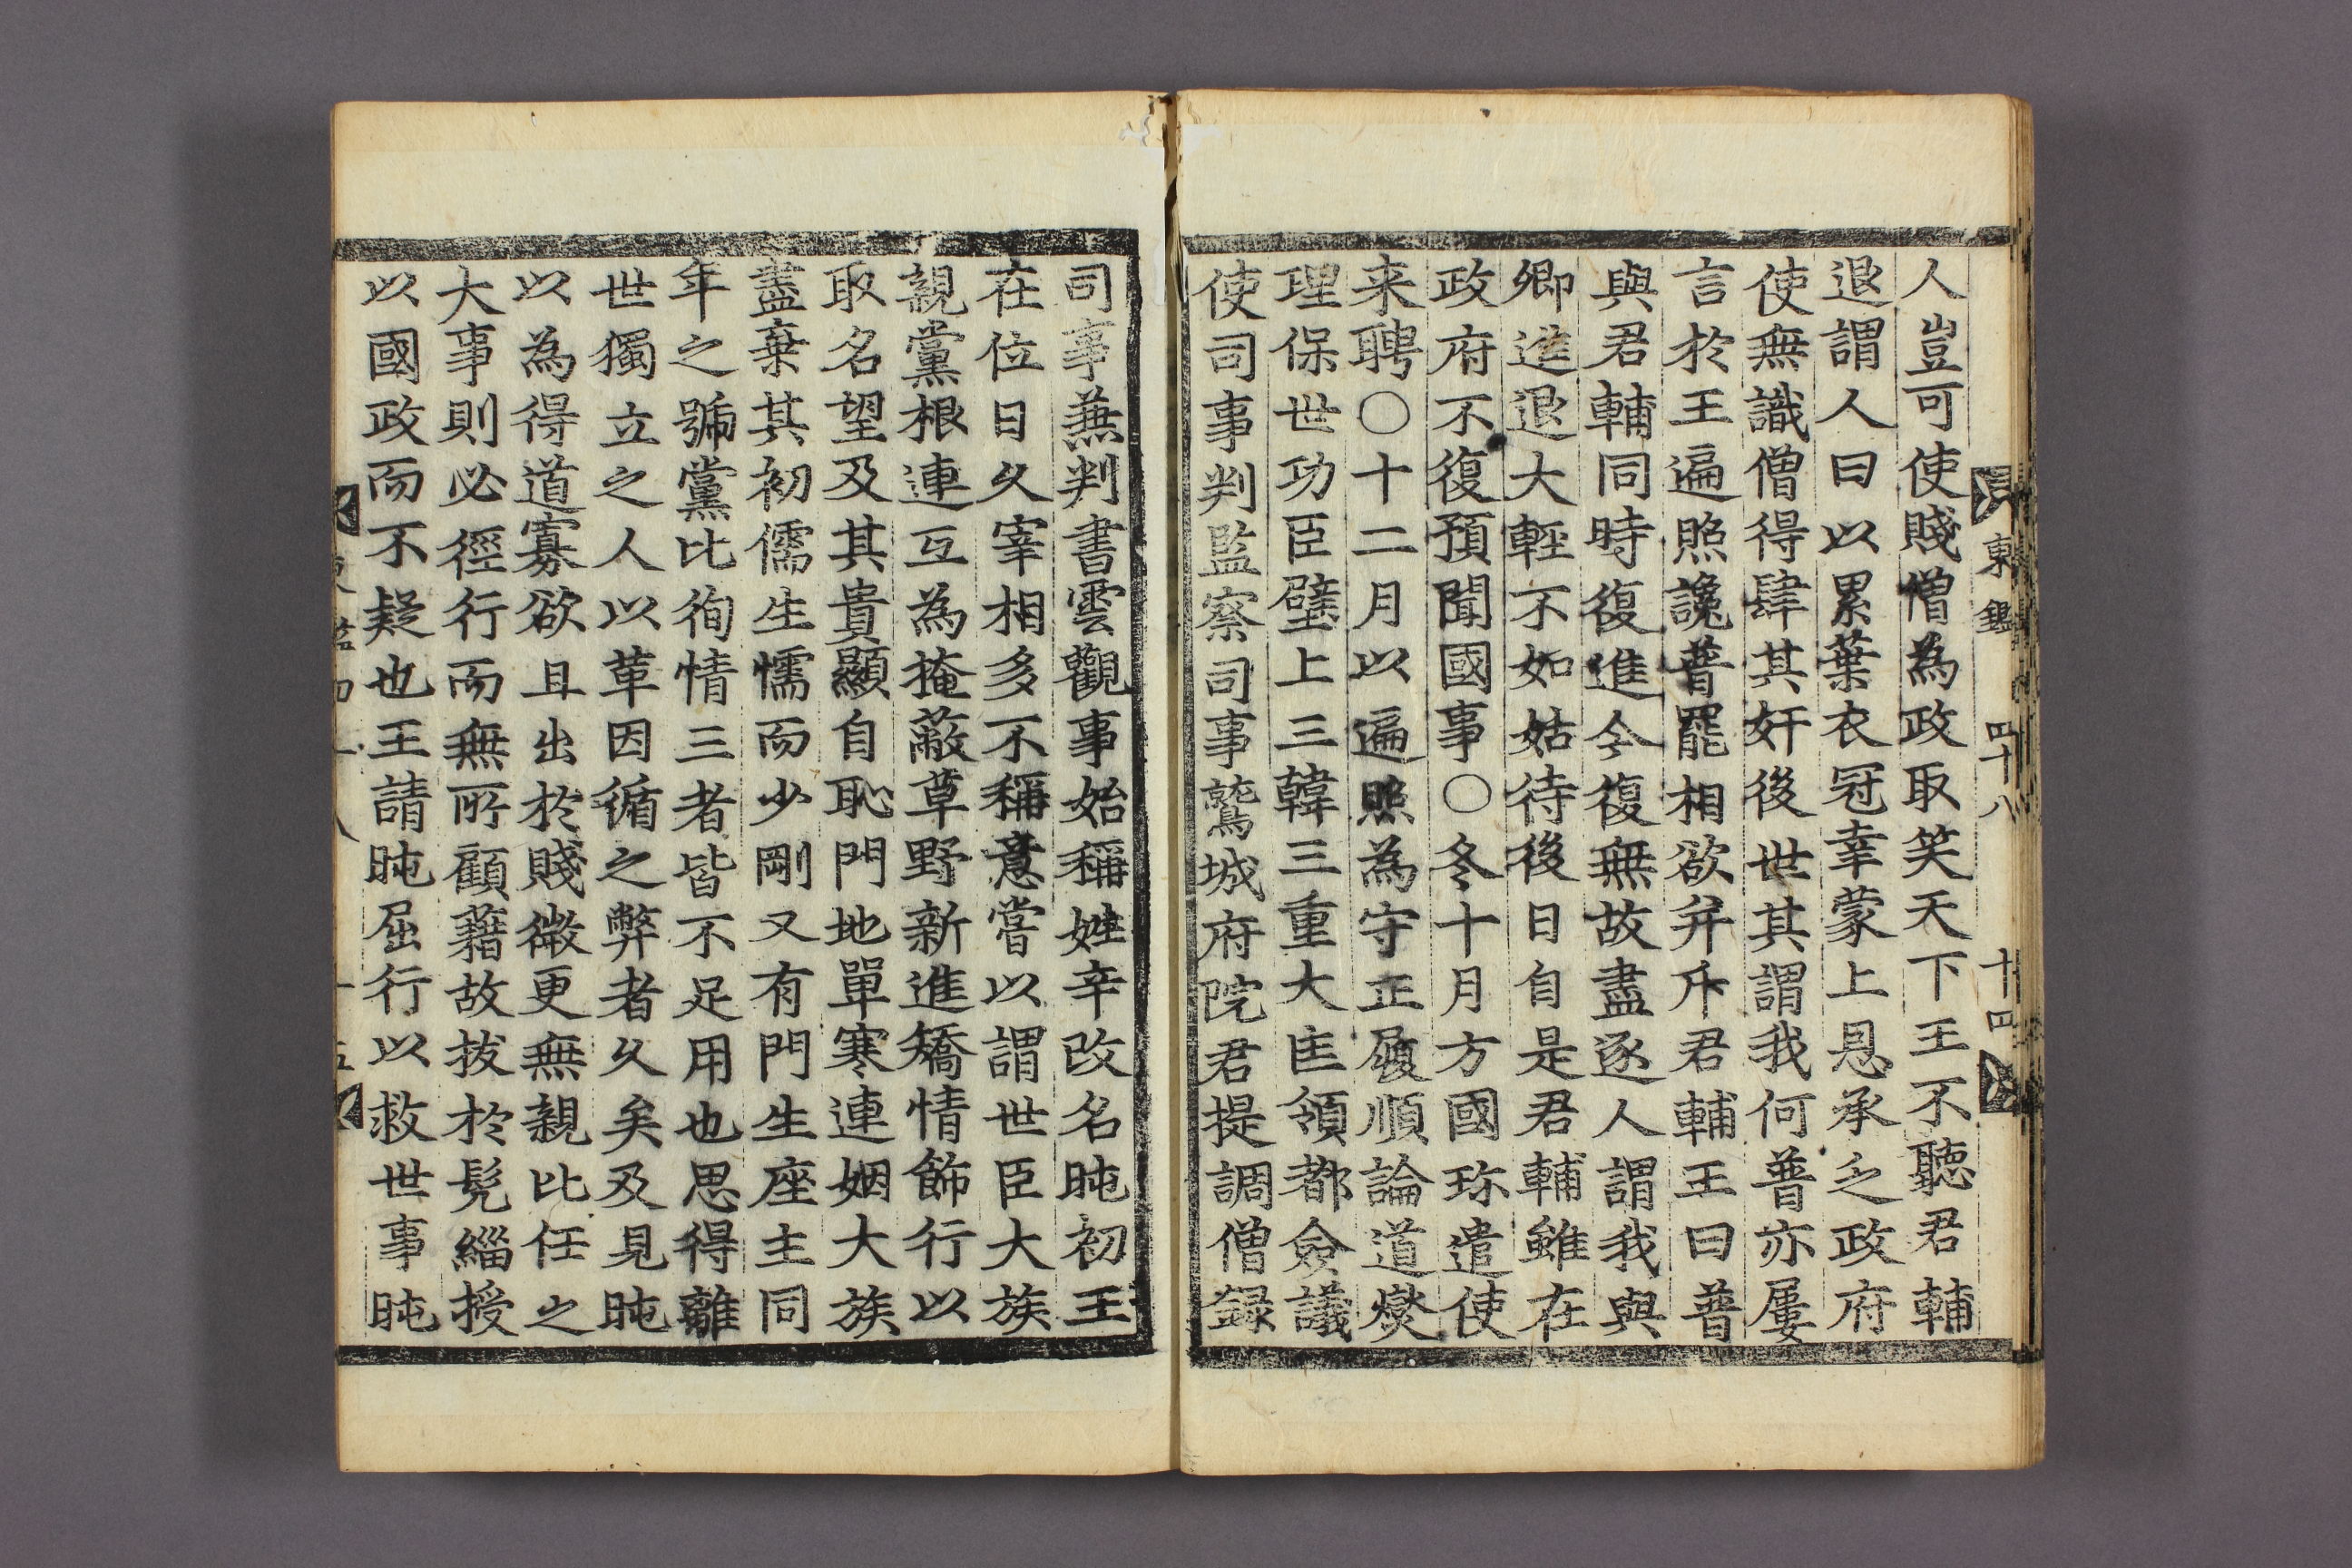 東鑑 四十八 十四
人豈可使賤僧為政取笑天下王不聽君輔
退謂人曰以累葉衣冠幸蒙上恩承乏政府
使無識僧得肆其奸後世其謂我何普亦屢
言於王遍照讒普罷相欲并斥君輔王曰普
與君輔同時復進今復無故盡逐人謂我與
卿進退大輕不如姑待後日自是君輔雖在
政府不復預聞國事〇冬十月方國珍遣使
来聘〇十二月以遍照為守正履順論道燮
理保世功臣壁上三韓三重大匡領都僉議
使司事判監察司事鷲城府院君提調僧録
司事兼判書雲觀事始稱姓辛改名旽初王
在位日久宰相多不稱意嘗以謂世臣大族
親黨根連互為掩蔽草野新進矯情飾行以
取名望及其貴顯自恥門地單寒連姻大族
盡棄其初儒生懦而少剛又有門生座主同
年之號黨比徇情三者皆不足用也思得離
世獨立之人以革因循之弊者久矣及見旽
以為得道寡欲且出於賤微更無親比任之
大事則必徑行而無所顧藉故拔於髡緇授
以國政而不疑也王請旽屈行以救世事旽